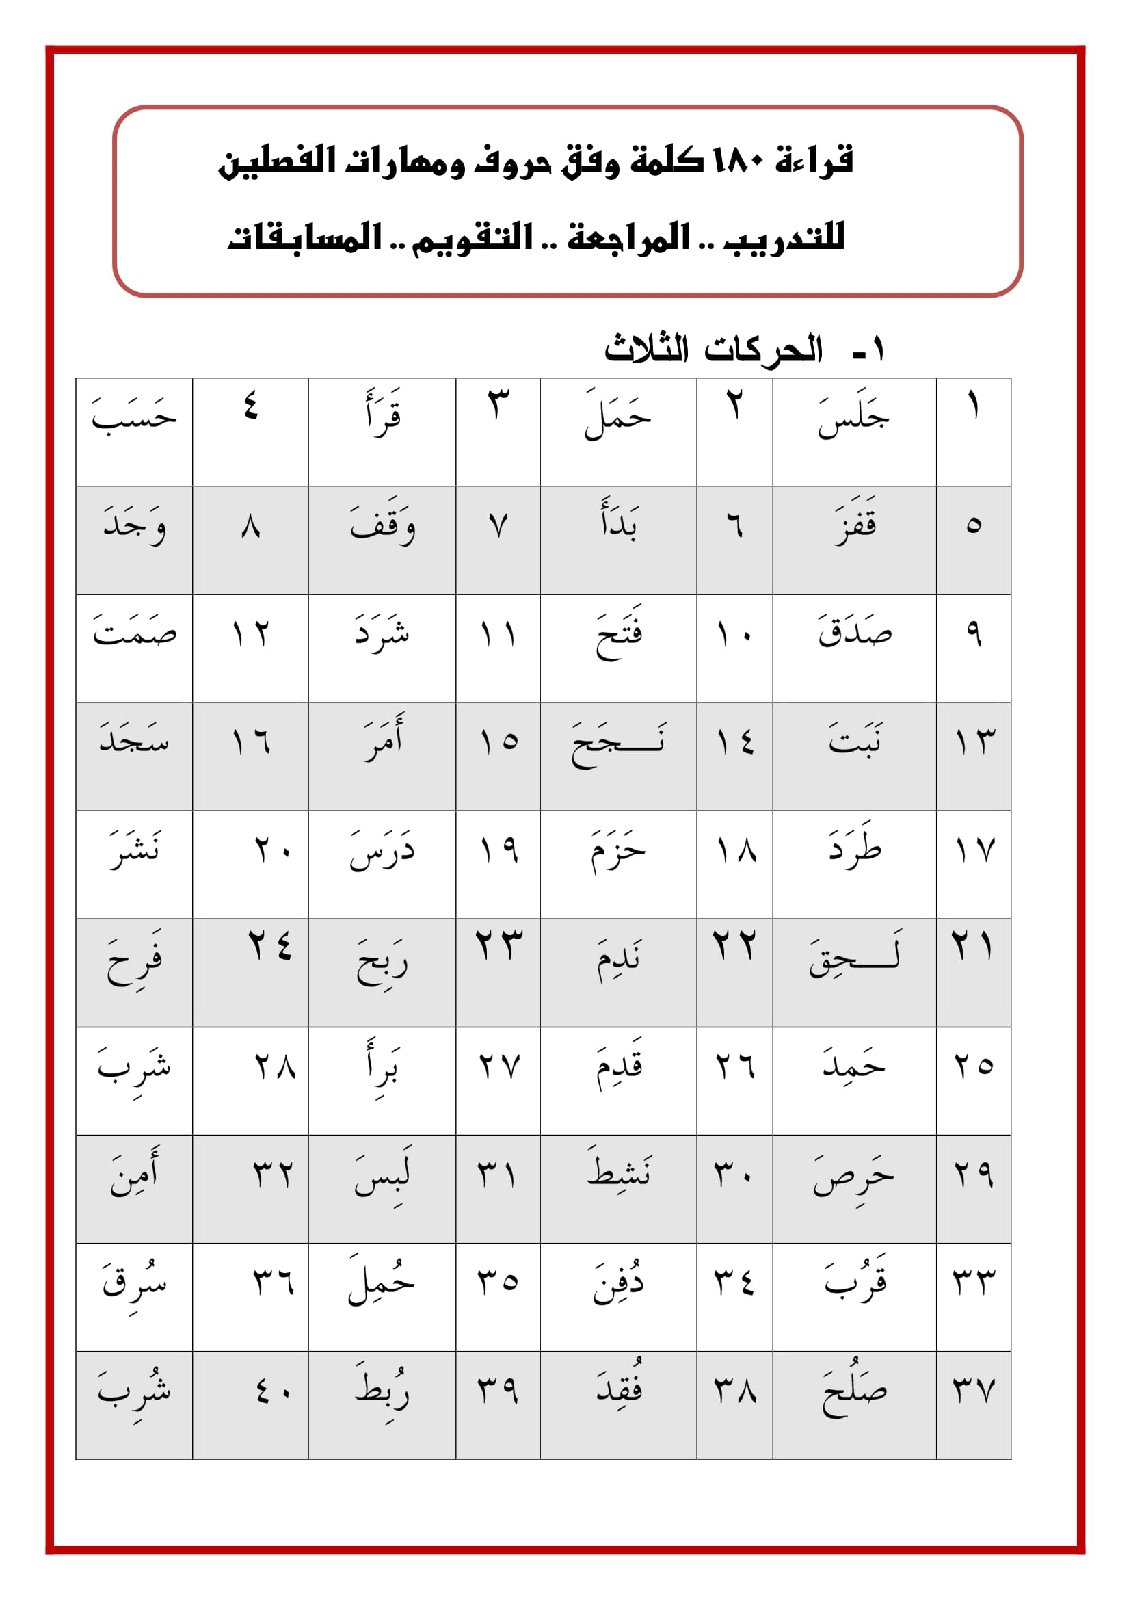 قراءة ١٨٠ كلمة وفق حروف ومهارات الفصلين
للتدريب .. المراجعة .. التقويم .. المسابقات
١- الحركات الثلاث
١ جَلَسَ ٢ حَمَلَ ٣ قَرَأَ ٤ حَسَبَ
٥ قَفَزَ ٦ بَدَأَ ٧ وَقَفَ ٨ وَجَدَ
٩ صَدَقَ ١٠ فَتَحَ ١١ شَرَدَ ١٢ صَمَتَ
١٣ نَبَتَ ١٤ نَـــجَحَ ١٥ أَمَرَ ١٦ سَجَدَ
١٧ طَرَدَ ١٨ حَزَمَ ١٩ دَرَسَ ٢٠ نَشَرَ
٢١ لَـــحِقَ ٢٢ نَدِمَ ٢٣ رَبِحَ ٢٤ فَرِحَ
٢٥ حَمِدَ ٢٦ قَدِمَ ٢٧ بَرِأَ ٢٨ شَرِبَ
٢٩ حَرِصَ ٣٠ نَشِطَ ٣١ لَبِسَ ٣٢ أَمِنَ
٣٣ قَرُبَ ٣٤ دُفِنَ ٣٥ حُمِلَ ٣٦ سُرِقَ
٣٧ صَلُحَ ٣٨ فُقِدَ ٣٩ رُبِطَ ٤٠ شُرِبَ